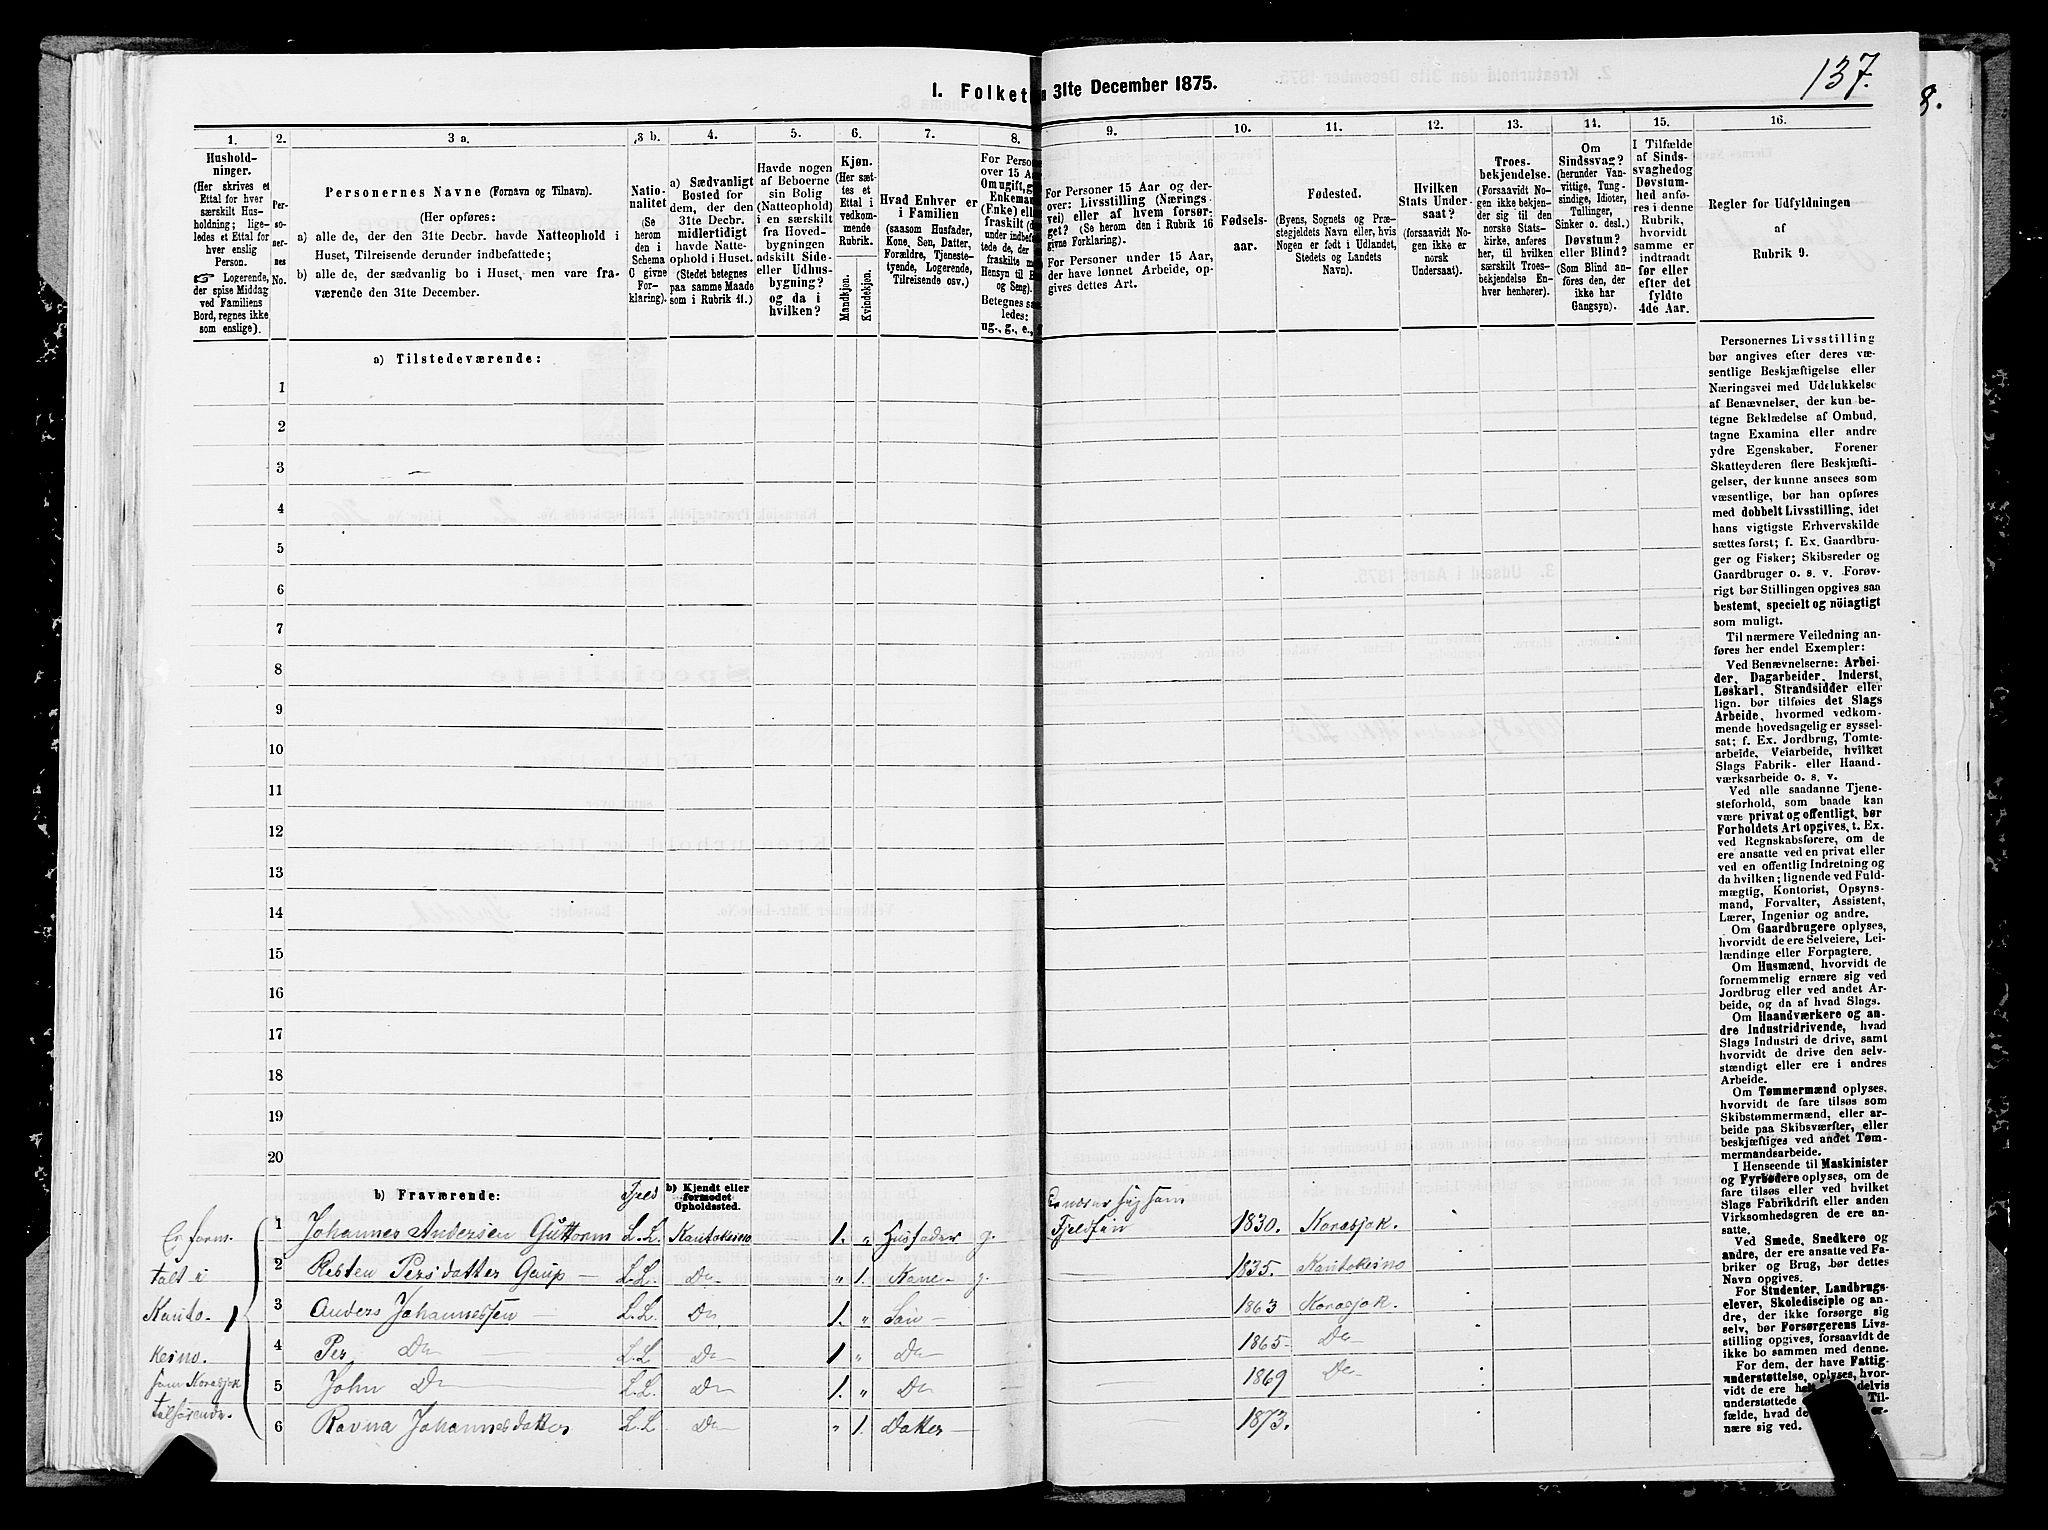 137.
8.
I. Folket 31te December 1875.
1. 2. 3 a. 3 b. 4. 5. 6. 7. 8. 9. 10. 11. 12. 13. 14. 15. 16.
Hushold-
ninger.
(Her skrives et
Ettal for hver
særskilt Hus-
holdning; lige-
ledes et Ettal for
hver enslig
Person.
☞ Logerende,
der spise Middag
ved Familiens
Bord, regnes ikke
som enslige).
Per-
so-
ner-
nes
No.
Personernes Navne (Fornavn og Tilnavn).
(Her opføres:
a) alle de, der den 31te Decbr. havde Natteophold i
Huset, Tilreisende derunder indbefattede;
b) alle de, der sædvanlig bo i Huset, men vare fra-
værende den 31te December.
Natio-
nalitet
(Se
herom
den i
Schema
C givne
For-
klaring).
a) Sædvanligt
Bosted for
dem, der den
31te Decbr.
midlertidigt
havde Natte-
ophold i Huset.
(Stedet betegnes
paa samme Maade
som i Rubrik 11.)
Havde nogen
af Beboerne
sin Bolig
(Natteophold)
i en særskilt
fra Hoved-
bygningen
adskilt Side-
eller Udhus-
bygning?
og da i
hvilken?
Kjøn.
(Her sæt-
tes et
Ettal i
vedkom-
mende
Rubrik.
Mandkjøn.
Kvindekjøn.
Hvad Enhver er
i Familien
(saasom Husfader,
Kone, Søn, Datter,
Forældre, Tjeneste-
tyende, Logerende,
Tilreisende osv.)
For Persone
over 15 Aar
Om ugift, g
Enkeman
(Enke) ell
fraskilt (d
under indbefat
tede de, der
fraskilte m
Hensyn til B
og Seng).
Betegnes saa
ledes:
ug., g., e.,
For Personer 15 Aar og der-
over: Livsstilling (Nærings-
vei) eller af hvem forsør-
get? (Se herom den i Rubrik 16
givne Forklaring).
For Personer under 15 Aar,
der have lønnet Arbeide, op-
gives dettes Art.
Fødsels-
aar.
Fødested.
(Byens, Sognets og Præ-
stegjeldets Navn eller, hvis
Nogen er født i Udlandet,
Stedets og Landets
Navn).
Hvilken
Stats Under-
saat?
(forsaavidt No-
gen ikke er
norsk
Undersaat).
Troes-
bekjendelse.
(Forsaavidt No-
gen ikke bekjen-
der sig til den
norske Stats-
kirke, anføres
her, til hvilken
særskilt Troes-
bekjendelse En-
hver henhører).
Om
Sindssvag?
(herunder Van-
vittige, Tung-
sindige, Idioter,
Tullinger,
Sinker o. desl.)
Døvstum?
eller Blind?
(Som Blind an-
føres den, der
ikke har
Gangsyn).
I Tilfælde
af Sinds-
svaghed og
Døvstum-
hed anfø-
res i denne
Rubrik,
hvorvidt
samme er
indtraadt
før eller
efter det
fyldte
4de Aar.
Regler for Udfyldningen
af
Rubrik 9.
a) Tilstedeværende:
1
2
3
4
5
6
7
8
9
10
11
12
13
14
15
16
17
18
19
20
Personernes Livsstilling
bør angives efter deres væ-
sentlige Beskjæftigelse eller
Næringsvei med Udelukkelse
af Benævnelser, der kun be-
tegne Beklædelse af Ombud,
tagne Examina eller andre
ydre Egenskaber. Forener
Skatteyderen flere Beskjæfti-
gelser, der kunne ansees som
væsentlige, bør han opføres
med dobbelt Livsstilling, idet
hans vigtigste Erhvervskilde
sættes først; f. Ex. Gaardbru-
ger og Fisker; Skibsreder og
Gaardbruger o. s. v. Forøv-
rigt bør Stillingen opgives saa
bestemt, specielt og nöiagtigt
som muligt.
Til nærmere Veiledning an-
føres her endel Exempler:
Ved Benævnelserne: Arbei-
der, Dagarbeider, Inderst,
Løskarl, Strandsidder eller
lign. bør tilføies det Slags
Arbeide, hvormed vedkom-
mende hovedsagelig er syssel-
sat; f. Ex. Jordbrug, Tomte-
arbeide, Veiarbeide, hvilket
Slags Fabrik- eller Haand-
værksarbeide o. s. v.
Ved alle saadanne Tjene-
steforhold, som baade kan
være privat og offentligt, bør
Forholdets Art opgives, t. Ex.
ved Regnskabsførere, om de
ere ansatte ved en privat eller
ved en offentlig Indretning og
da hvilken; lignende ved Fuld-
mægtig, Kontorist, Opsyns-
mand, Forvalter, Assistent,
Lærer, Ingeniør og andre.
Om Gaardbrugere oplyses,
hvorvidt de ere Selveiere, Lei-
lændinge eller Forpagtere.
Om Husmænd, hvorvidt de
fornemmelig ernære sig ved
Jordbrug eller ved andet Ar-
beide, og da af hvad Slags.
Om Haandværkere og an-
dre Industridrivende, hvad
Slags Industri de drive, samt
hvorvidt de drive den selv-
stændigt eller ere i andres
Arbeide.
Om Tømmermænd oplyses,
hvorvidt de fare tilsøs som
Skibstømmermænd, eller ar-
beide paa Skibsværfter, eller
beskjæftiges ved andet Tøm-
mermandsarbeide.
I Henseende til Maskinister
og Fyrbødere oplyses, om de
fare tilsøs eller ved hvilket
Slags Fabrikdrift eller anden
Virksomhedsgren de ere an-
satte.
Ved Smede, Snedkere og
andre, der ere ansatte ved Fa-
briker og Brug, bør dettes
Navn opgives.
For Studenter, Landbrugs-
elever, Skoledisciple og an-
dre, der ikke forsørge sig
selv, bør Forsørgerens Livs-
stilling opgives, forsaavidt de
ikke bo sammen med denne.
For dem, der have Fattig-
understøttelse, oplyses, hvor-
vidt de ere hel delvis
understøttede Til-
fælde, hvad de er-
nære sig ved.
b) Fraværende: b) Kjendt eller
formodet
Opholdssted.
1 Johannes Andersen Guttorm L. L. Kautokeino 1. „ Husfader g. Fjeldfin 1830. Karasjok.
2 Resten Persdatter Gaup — L. L. Do „ 1. Kone — g. 1835. Kautokeino
3 Anders Johannessen — L. L. Do 1. „ Søn — 1863 Karasjok.
4 Per Do — L. L Do 1 „ Do 1865 — Do
5 John Do — L. L. Do 1. „ Do — 1869 Do
6 Ravna Johannesdatter L. L Do „ 1. Datter — 1873.
Er
talt i
Kauto-
keino.
som Karasjok
tilhørende.